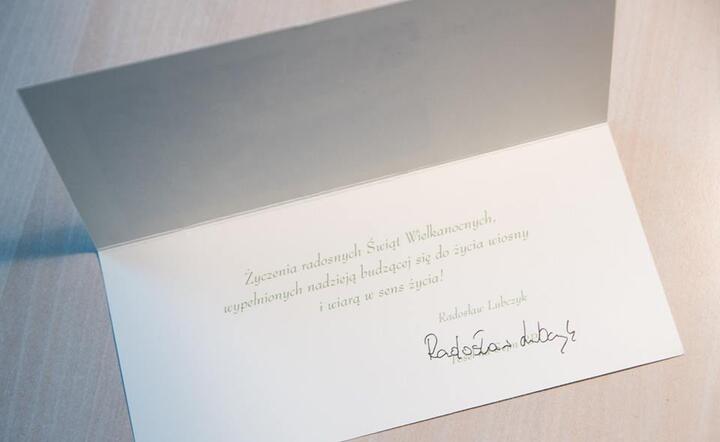 Życzenia radosnych Świąt Wielkanocnych,
wypełnionych nadzieją budzącej się do życia wiosny
i wiarą w sens życia!
Radosław Lubczyk
Radosław Lubczyk